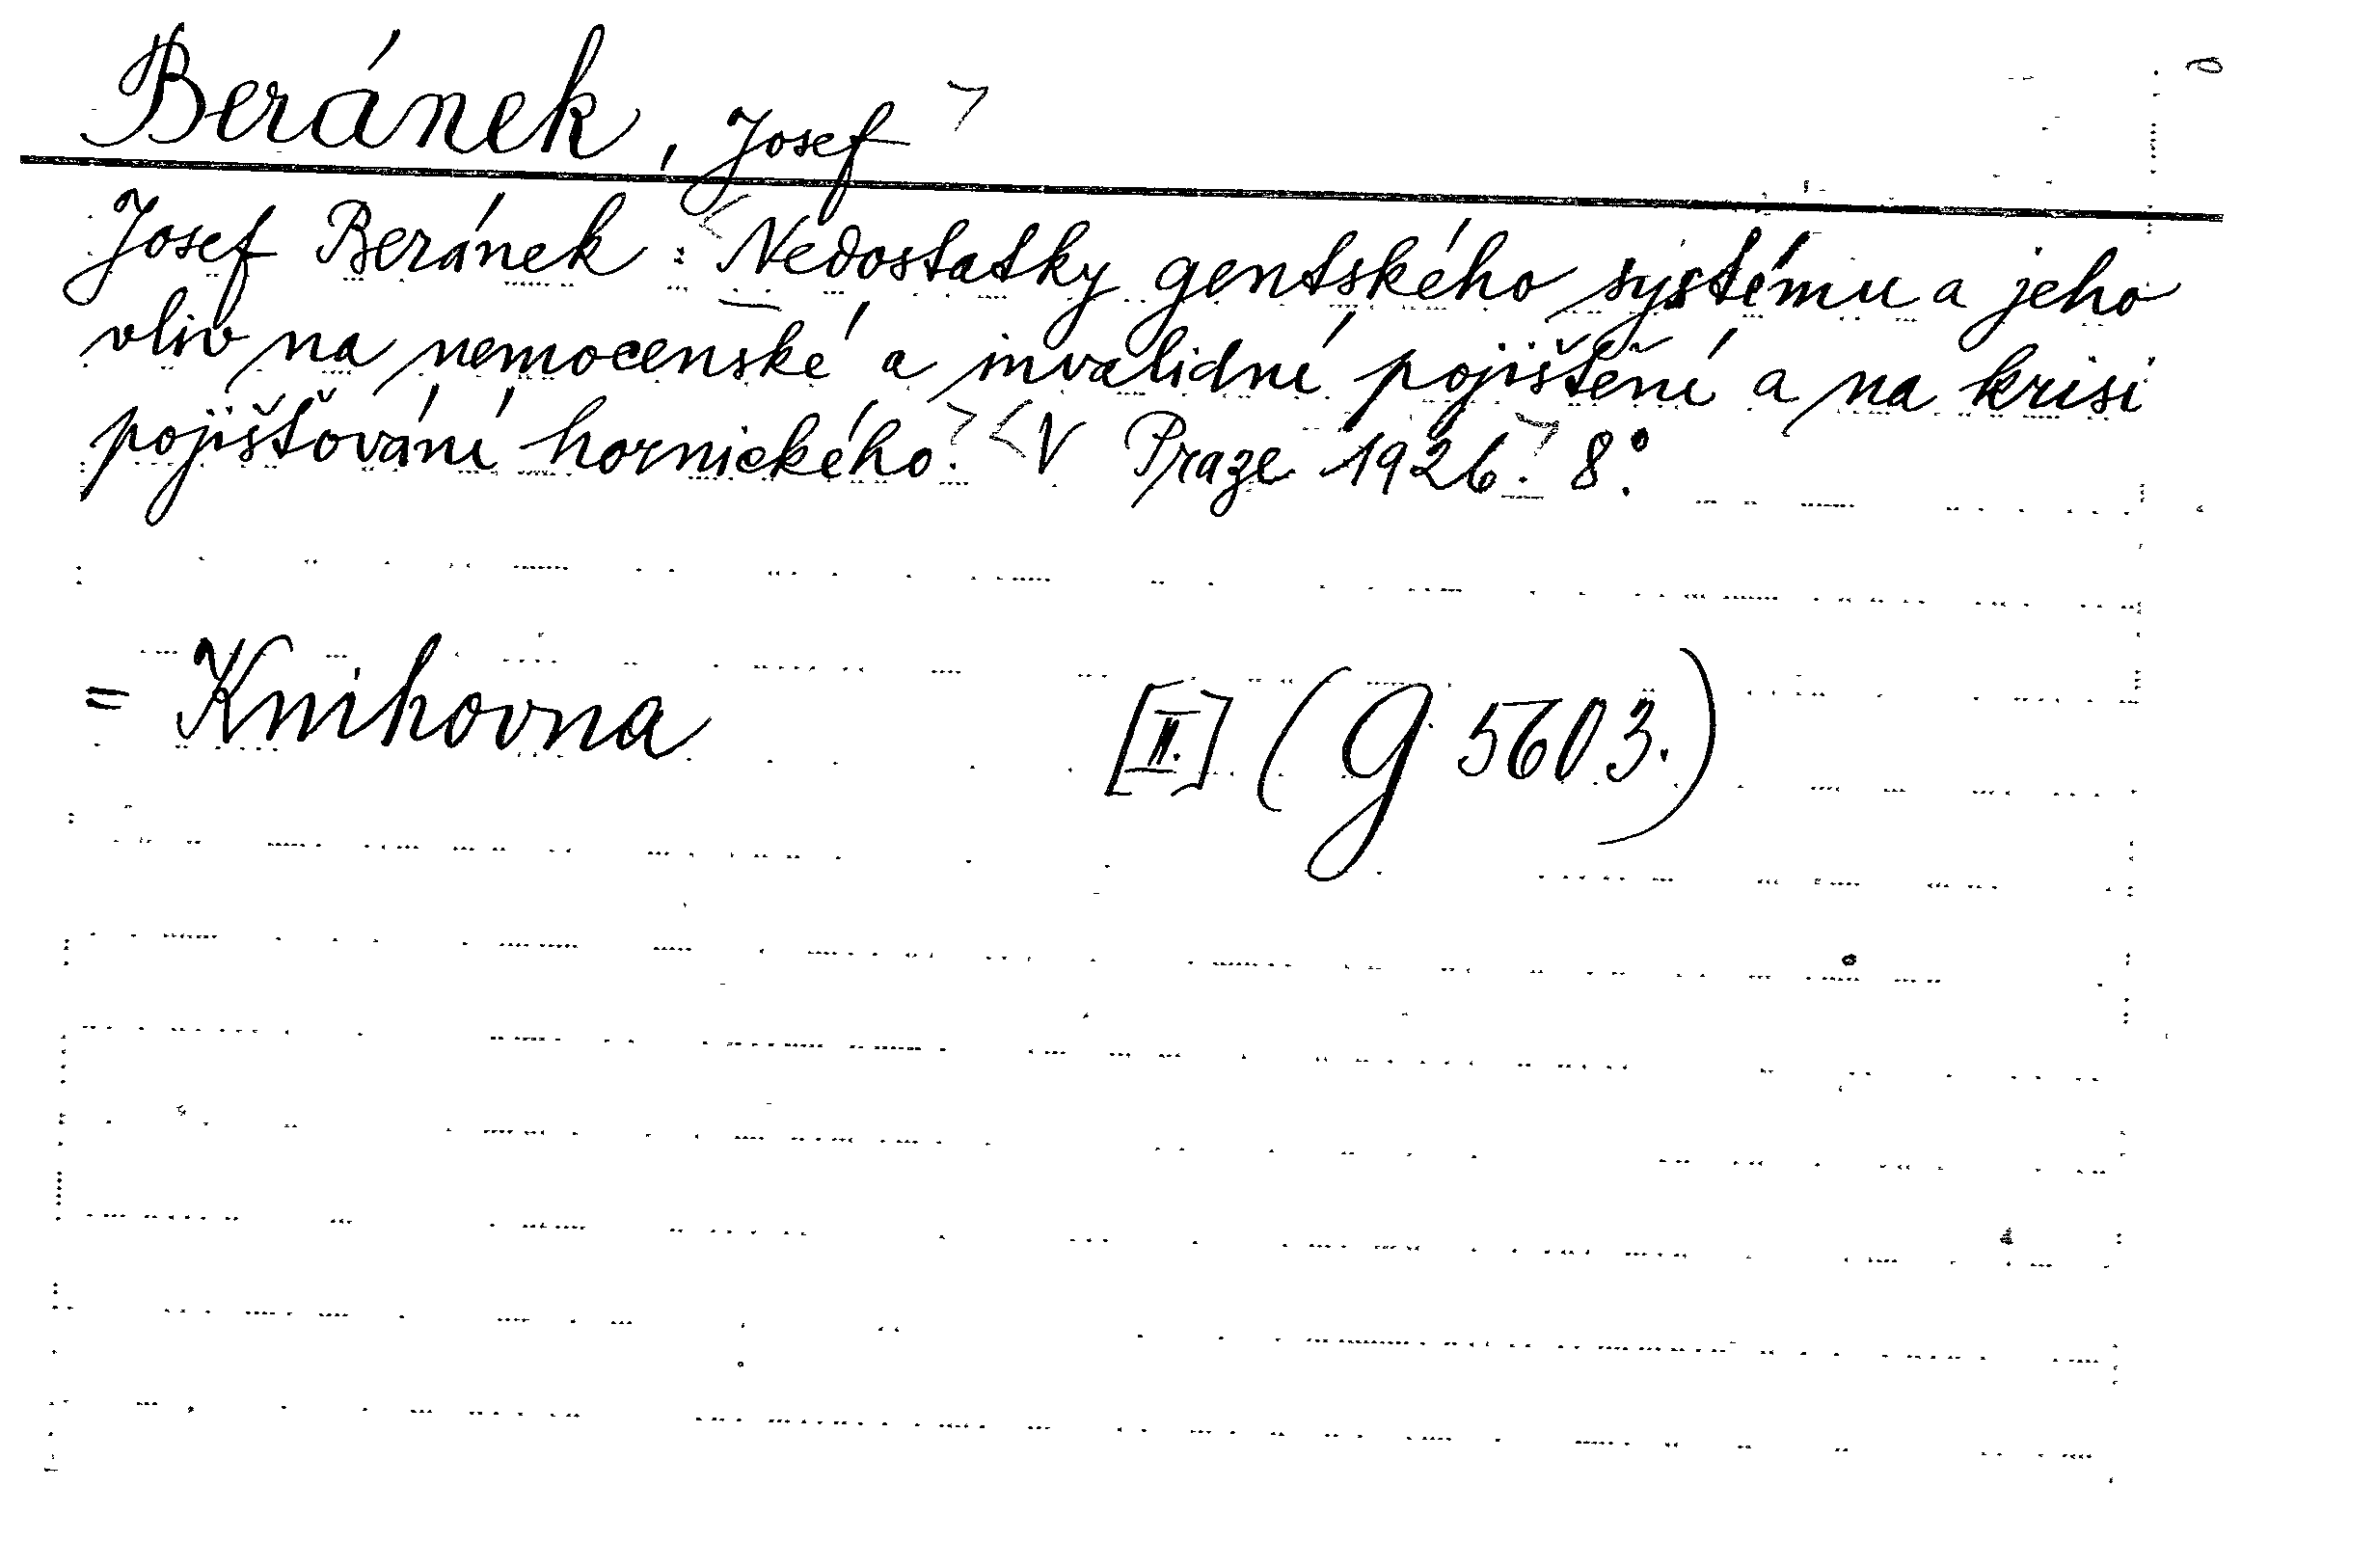 Beránek, Josef
Josef Beránek: Nedostatky gentského systému a jeho
vliv na nemocenské a invalidní pojištění a na krisi
pojišťování hornického. V Praze 1926. 8°.
= Knihovna [II.] (G 5603.)